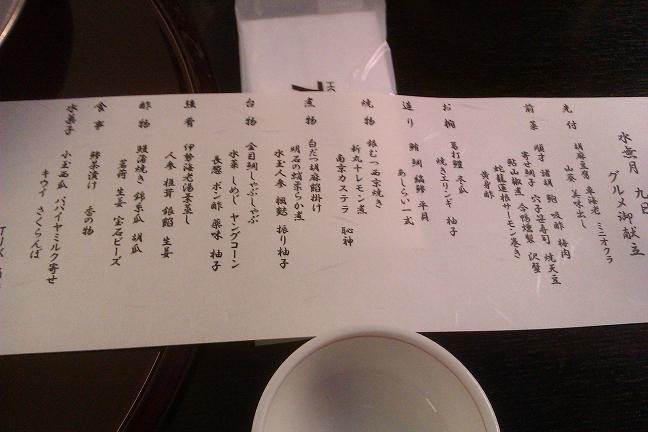 水無月 九日
グルメ御献立
先付
胡麻豆腐 車海老 ミニオクラ
山葵 美味出し
前菜
順才 諸胡 鮑 吸酢 梅肉
寄せ鯛子 穴子笹寿司 焼天豆
鮎山椒煮 合鴨燻製 沢蟹
蛇籠蓮根サーモン巻き
黄身酢
お椀
葛打鱧 冬瓜
焼きエリンギ 柚子
造り
鮪 鯛 縞鯵 平貝
あしらい一式
焼物
銀むつ西京焼き
新丸十レモン煮
南京カステラ 恥神
煮物
白だつ胡麻餡掛け
明石の蛸柔らか煮
水玉人参 楓麩 振り柚子
台物
金目鯛しゃぶしゃぶ
水菜 しめじ ヤングコーン
長葱 ポン酢 薬味 柚子
強肴
伊勢海老湯葉蒸し
人参 椎茸 銀餡 生姜
酢物
鰻蒲焼き 錦糸瓜 胡瓜
茗荷 生姜 宝石ビーズ
食事
鯵茶漬け 香の物
水菓子
小玉西瓜 パパイヤミルク寄せ
キウイ さくらんぼ